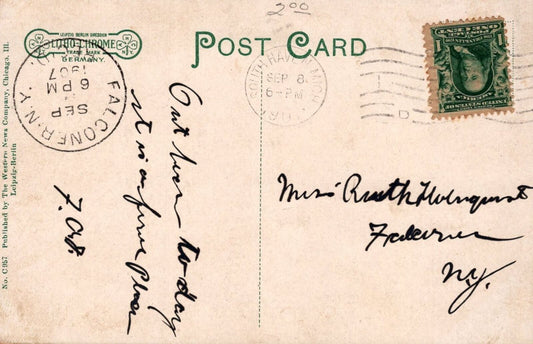 200
LEIPZIG BERLIN DRESDEN
LOUIS-CHROME
TRADE MARK
GERMANY.
POST CARD
FALCONER, N.Y.
SEP
6 PM
1907
SOUTH HAVEN, MICH
SEP 8
6-PM
D
1 ONE CENT 1
No. C957 Published by The Western News Company, Chicago, Ill.
Leipzig-Berlin
Out here to-day
it is a fine place
Miss Ruth Holmquist
Falconer
N.Y.